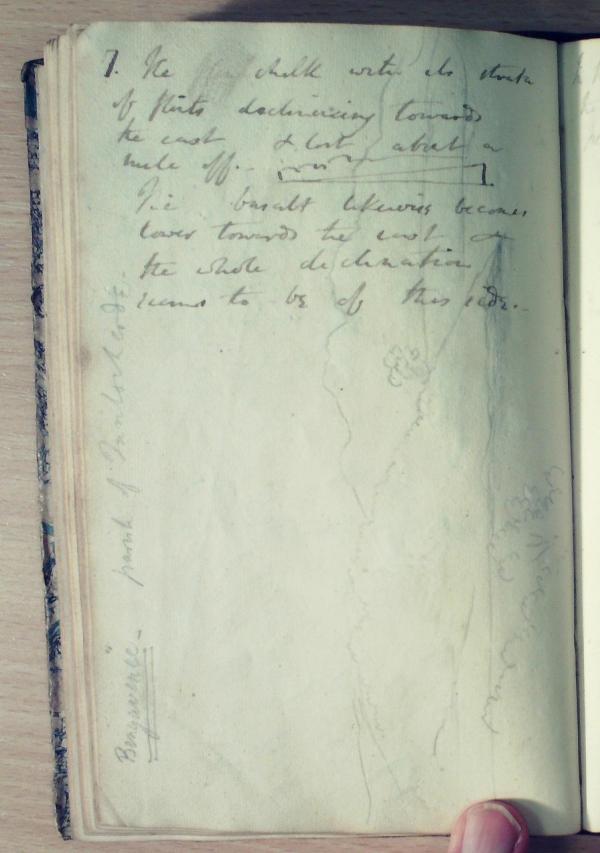 7. The chalk with its strata
of flints declining towards
the east & lost about a
mile off.-
The basalt likewise becomes
lower towards the east &
the whole declination
seems to be of this side.-
parish of